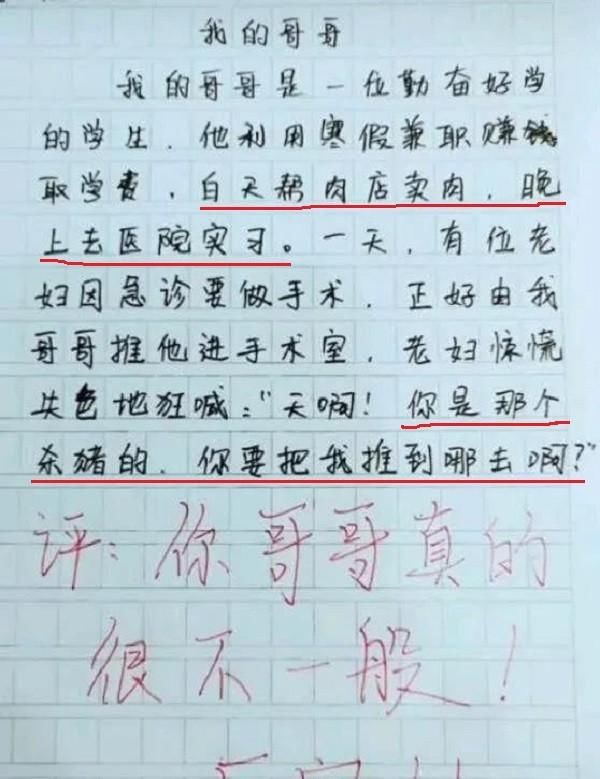 我的哥哥
我的哥哥是一位勤奋好学
的学生．他利用寒假兼职赚钱
取学费，白天帮肉店卖肉，晚
上去医院实习。一天，有位老
妇因急诊要做手术，正好由我
哥哥推他进手术室，老妇惊慌
失色地狂喊："天啊！你是那个
杀猪的．你要把我推到哪去啊？"
评：你哥哥真的
很不一般！